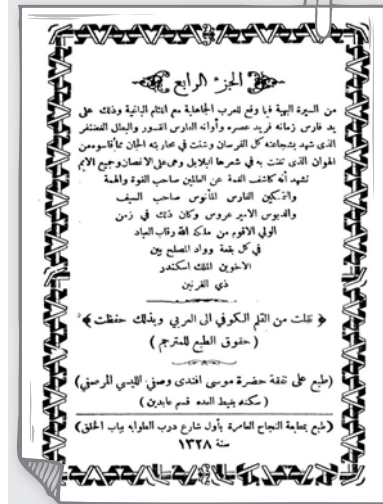 الجزء الرابع
من السيرة البهية فيما وقع للعرب الجاهلية مع الفئام الباغية وذلك على
يد فارس زمانه فريد عصره وأوانه الفارس القسور والبطل الغضنفر
الذى شهد بشجاعته كل الفرسان وشتت في محاربته الجان مما قاسوه من
الهوان الذى تغنت به في شعرها البلابل وهى على الاغصان وجميع الامم
تشهد أنه كاشف الغمة عن العالمين صاحب القوة والهمة
والتمكين الفارس المأنوس صاحب السيف
والدبوس الامير عروس وكان ذلك في زمن
الولي الاقوم من ملكه الله رقاب العباد
في كل بقعة وواد المصلح بين
الاخوين الملك اسكندر
ذي القرنين
﴿ نقلت من القلم الكوفي الى العربي وبذلك حفظت ﴾
( حقوق الطبع للمترجم )
(طبع على نفقة حضرة موسى افندى وصفي الليسي المرصفي)
( سكنه بغيط العده قسم عابدين )
(طبع بمطبعة النجاح العامرة بأول شارع درب الطوابه بباب الخلق)
سنة ١٣٢٨